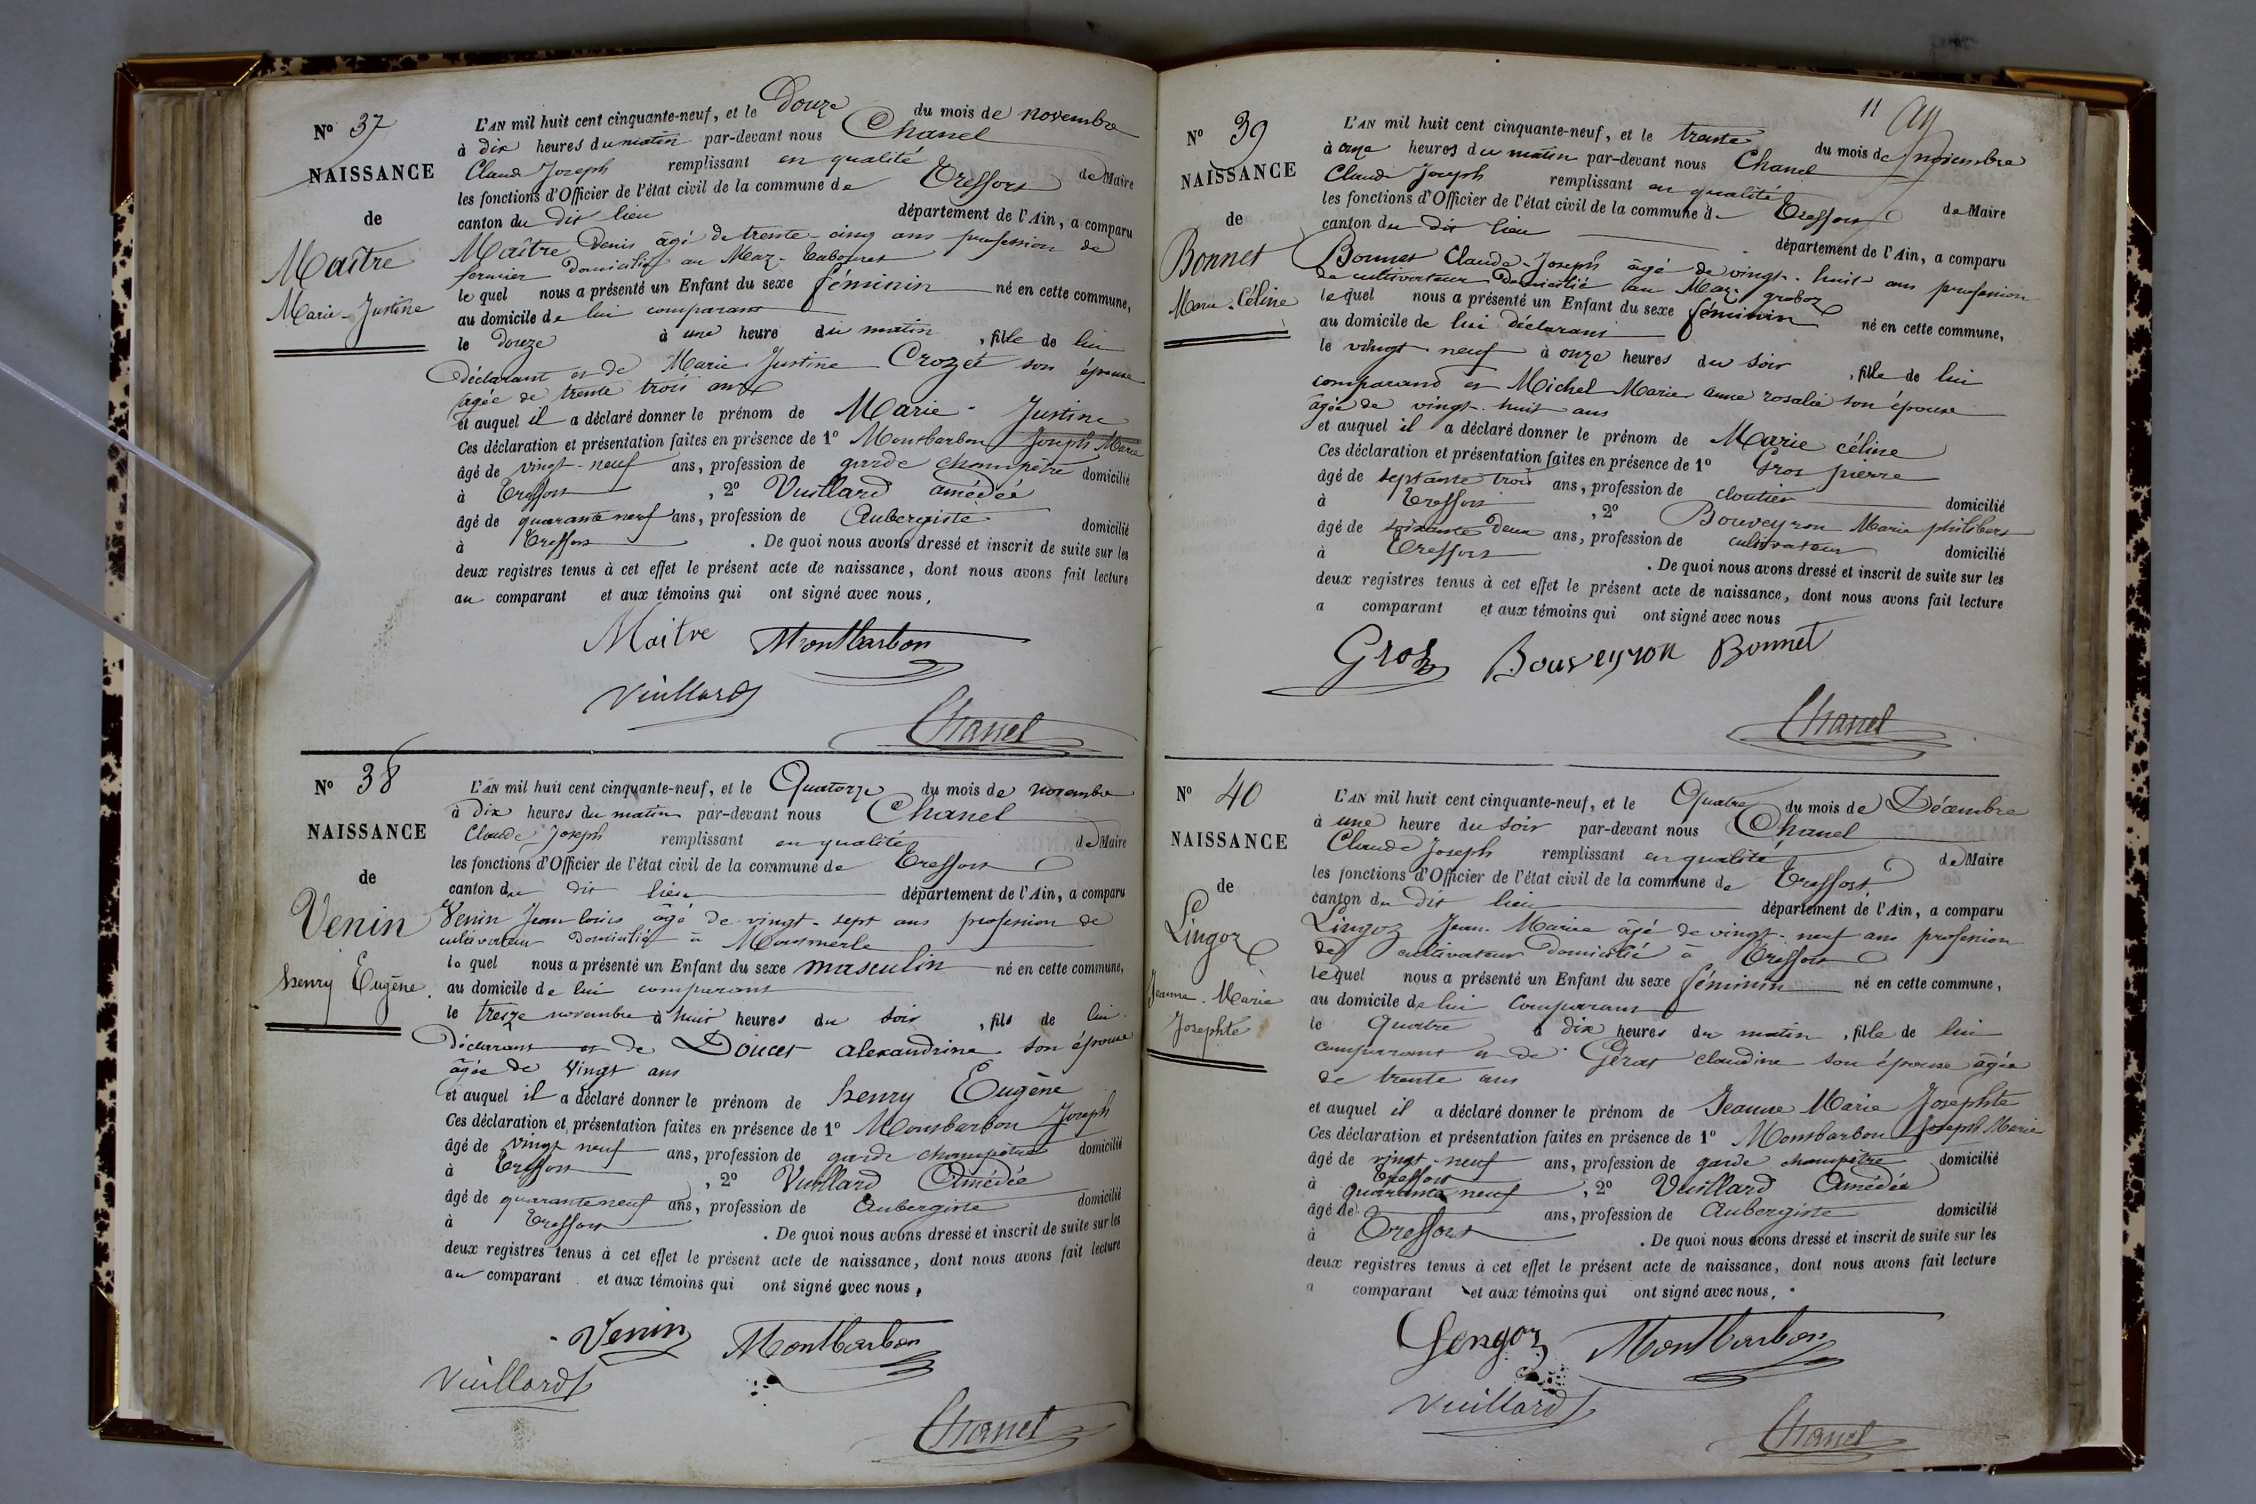 Nº 37
NAISSANCE
de
Maître
Marie-Justine
L'AN mil huit cent cinquante-neuf, et le Douze du mois de novembre
à dix heures du matin par-devant nous Chanel
Claude Joseph remplissant en qualité de Maire
les fonctions d'Officier de l'état civil de la commune de Treffort
canton du dit lieu département de l'Ain, a comparu
Maître Denis âgé de trente-cinq ans profession de
fermier domicilié au Maz-
le quel nous a présenté un Enfant du sexe féminin né en cette commune,
au domicile de lui comparant
le douze à une heure du matin, fille de lui
déclarant et de Marie Justine Crozet son épouse
âgée de trente trois ans
et auquel il a déclaré donner le prénom de Marie-Justine
Ces déclaration et présentation faites en présence de 1º Montbarbon Joseph Marie
âgé de vingt-neuf ans, profession de garde champêtre domicilié
à Treffort, 2º Vuillard amédée
âgé de quarante neuf ans, profession de Aubergiste domicilié
à Treffort. De quoi nous avons dressé et inscrit de suite sur les
deux registres tenus à cet effet le présent acte de naissance, dont nous avons fait lecture
au comparant et aux témoins qui ont signé avec nous,
Maitre Montbarbon
Vuillard
Chanel
Nº 38
NAISSANCE
de
Venin
henry Eugène
L'AN mil huit cent cinquante-neuf, et le Quatorze du mois de novembre
à Dix heures du matin par-devant nous Chanel
Claude Joseph remplissant en qualité de Maire
les fonctions d'Officier de l'état civil de la commune de Treffort
canton du dit lieu département de l'Ain, a comparu
Venin Jean louis âgé de vingt-sept ans profession de
cultivateur domicilié à Montmerle
le quel nous a présenté un Enfant du sexe masculin né en cette commune,
au domicile de lui comparant
le treize novembre à huit heures du soir, fils de lui
déclarant et de Doucet alexandrine son épouse
âgée de vingt ans
et auquel il a déclaré donner le prénom de henry Eugène
Ces déclaration et présentation faites en présence de 1º Montbarbon Joseph
âgé de vingt neuf ans, profession de garde champêtre domicilié
à Treffort, 2º Vuillard Amédée
âgé de quarante neuf ans, profession de Aubergiste domicilié
à Treffort. De quoi nous avons dressé et inscrit de suite sur les
deux registres tenus à cet effet le présent acte de naissance, dont nous avons fait lecture
au comparant et aux témoins qui ont signé avec nous,
Venin Montbarbon
Vuillard
Chanel
11
Nº 39
NAISSANCE
de
Bonnet
Marie-Céline
L'AN mil huit cent cinquante-neuf, et le trente du mois de novembre
à onze heures du matin par-devant nous Chanel
Claude Joseph remplissant en qualité de Maire
les fonctions d'Officier de l'état civil de la commune de Treffort
canton du dit lieu département de l'Ain, a comparu
Bonnet Claude-Joseph âgé de vingt-huit ans profession
de cultivateur domicilié au Maz groboz
le quel nous a présenté un Enfant du sexe féminin né en cette commune,
au domicile de lui déclarant
le vingt-neuf à onze heures du soir, fille de lui
comparand et Michel Marie anne rosalie son épouse
âgée de vingt-huit ans
et auquel il a déclaré donner le prénom de Marie céline
Ces déclaration et présentation faites en présence de 1º Gros pierre
âgé de septante trois ans, profession de cloutier domicilié
à Treffort, 2º Bouveyron Marie philibert
âgé de soixante deux ans, profession de cultivateur domicilié
à Treffort. De quoi nous avons dressé et inscrit de suite sur les
deux registres tenus à cet effet le présent acte de naissance, dont nous avons fait lecture
a comparant et aux témoins qui ont signé avec nous
Gros Bouveyron Bonnet
Chanel
Nº 40
NAISSANCE
de
Lingoz
Jeanne-Marie
Josephte
L'AN mil huit cent cinquante-neuf, et le Quatre du mois de Décembre
à une heure du soir par-devant nous Chanel
Claude Joseph remplissant en qualité de Maire
les fonctions d'Officier de l'état civil de la commune de Treffort
canton du dit lieu département de l'Ain, a comparu
Lingoz Jean-Marie âgé de vingt-neuf ans profession
de cultivateur domicilié à Treffort
le quel nous a présenté un Enfant du sexe féminin né en cette commune,
au domicile de lui comparant
le Quatre à dix heures du matin, fille de lui
comparant et de Gérat claudine son épouse âgée
de trente ans
et auquel il a déclaré donner le prénom de Jeanne Marie Josephte
Ces déclaration et présentation faites en présence de 1º Montbarbon Joseph Marie
âgé de vingt-neuf ans, profession de garde champêtre domicilié
à Treffort, 2º Vuillard Amédée
âgé de quarante neuf ans, profession de Aubergiste domicilié
à Treffort. De quoi nous avons dressé et inscrit de suite sur les
deux registres tenus à cet effet le présent acte de naissance, dont nous avons fait lecture
a comparant et aux témoins qui ont signé avec nous,
Gengoz Montbarbon
Vuillard
Chanel